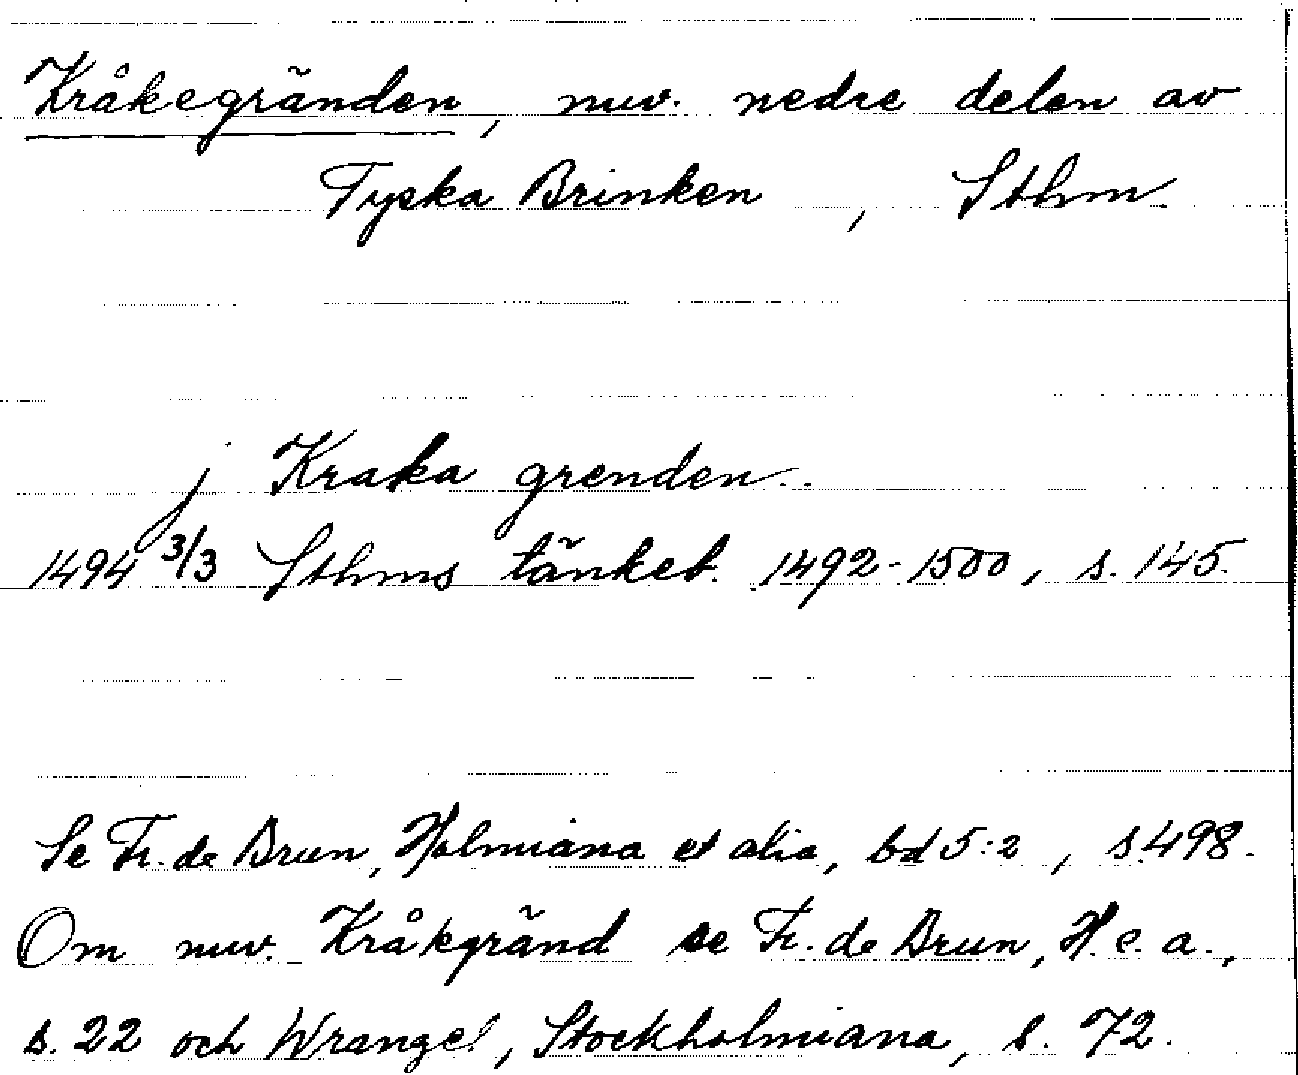 Kråkegränden, nuv. nedre delen av
Tyska Brinken, Sthm.
j Kraka grenden.
1494 3/3 Sthms tänkeb. 1492-1500, s. 145.
Se Fr. de Brun, Holmiana et alia, bd 5:2, s. 498.
Om nuv. Kråkgränd se Fr. de Brun, H. e. a.,
s. 22 och Wrangel, Stockholmiana, s. 72.